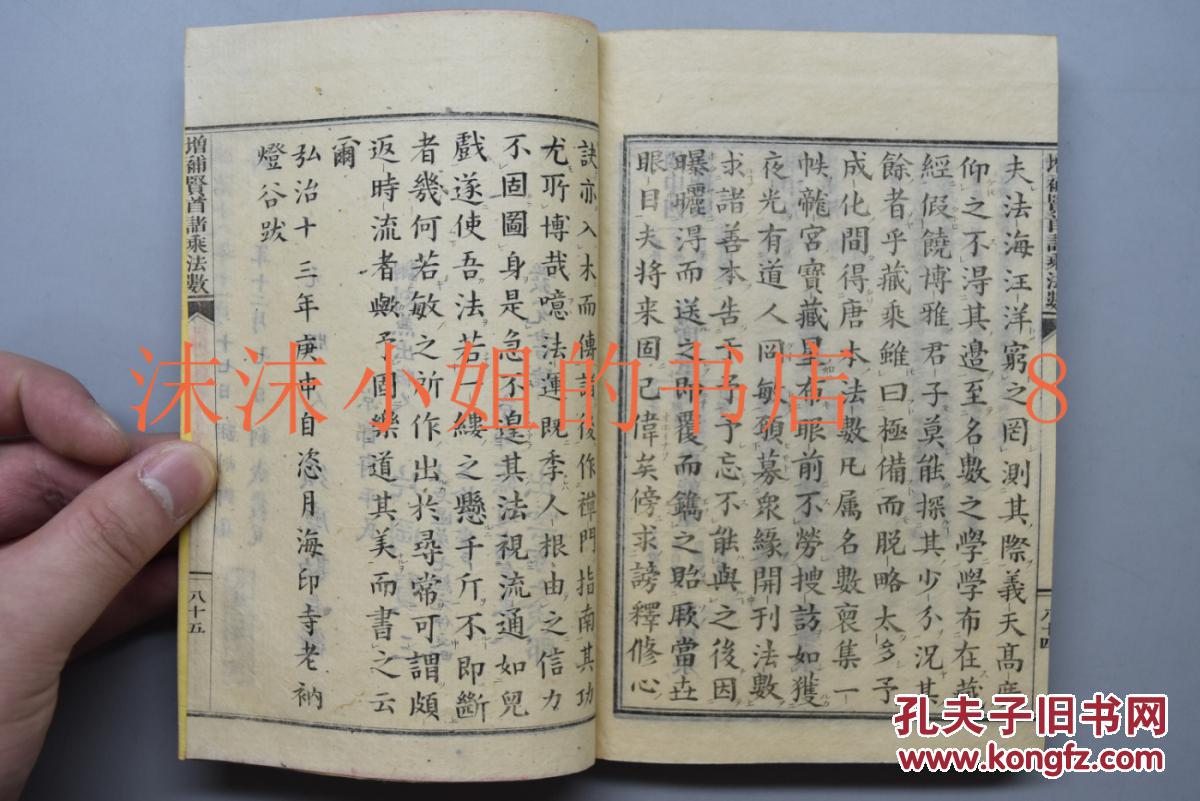 夫法海汪洋窮之罔測其際義天高廣
仰之不得其邊至名數之學學布在藏
經假饒博雅君子莫能探其少分況其
餘者乎藏乘雖曰極備而脫略太多予
成化間得唐本法數凡属名數裒集一
帙龍宮寶藏星布眼前不勞搜訪如獲
夜光有道人罔敏碩募衆緣開刊法數
求諸善本告于予予忘不能與之後因
曝曬得而送之即覆而鐫之貽厥當世
眼目夫将来固已偉矣傍求謗釋修心
八十四
增補賢首諸乘法數
訣亦入木而傳諸後作禪門指南其功
尤所博哉噫法運既季人根由之信力
不固圖身是急不遑其法視流通如兒
戲遂使吾法若一縷之懸千斤不即斷
者幾何若敏之所作出於尋常可謂頗
返時流者歟予固樂道其美而書之云
爾
弘治十三年庚申自恣月海印寺老衲
燈谷跋
增補賢首諸乘法數
八十五
沫沫小姐的书店 8
孔夫子旧书网
www.kongfz.com